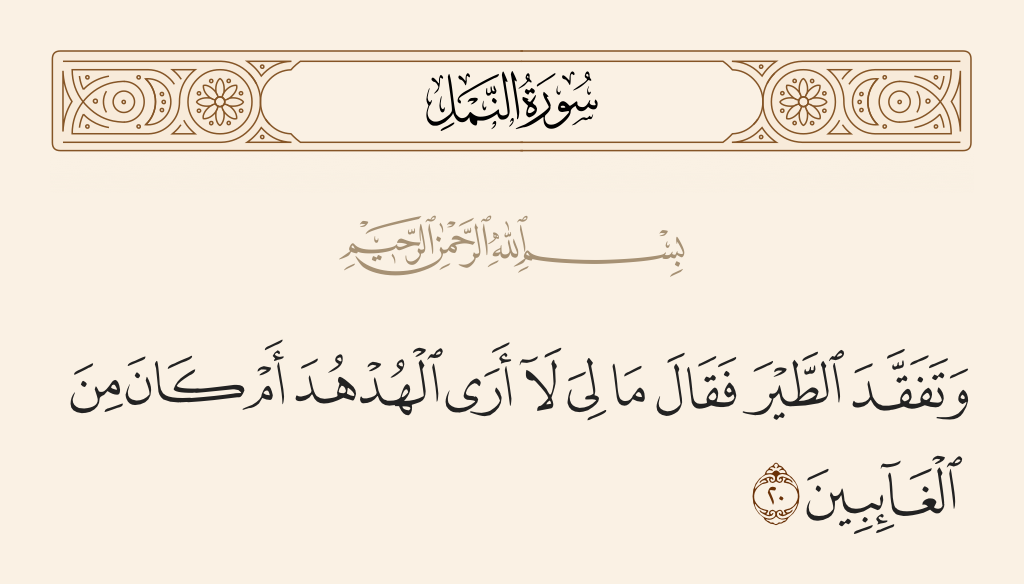 سُورَةُ النَّمْلِ
بِسْمِ ٱللَّهِ ٱلرَّحْمَٰنِ ٱلرَّحِيمِ
وَتَفَقَّدَ ٱلطَّيْرَ فَقَالَ مَا لِىَ لَآ أَرَى ٱلْهُدْهُدَ أَمْ كَانَ مِنَ
ٱلْغَآئِبِينَ ٢٠